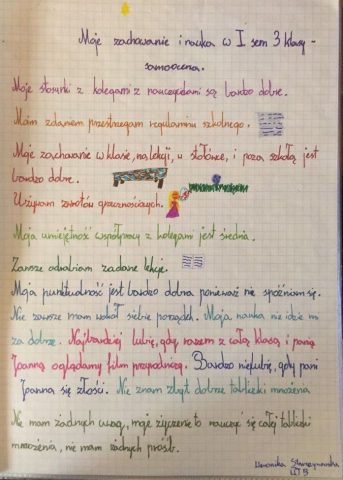 Moje zachowanie i nauka w I sem 3 klasy -
samoocena.
Moje stosunki z kolegami z nauczycielami są bardzo dobre.
Moim zdaniem przestrzegam regulaminu szkolnego.
Moje zachowanie w klasie, na lekcji, w stołówce, i poza szkołą jest
bardzo dobre.
Używam zwrotów grzecznościowych.
Moja umiejętność współpracy z kolegami jest średnia.
Zawsze odrabiam zadane lekcje.
Moja punktualność jest bardzo dobra ponieważ nie spóźniam się.
Nie zawsze mam wokół siebie porządek. Moja nauka nie idzie m
za dobrze. Najbardziej lubię, gdy razem z całą klasą i panią
Joanną oglądamy film przyrodniczy. Bardzo nie lubię, gdy pani
Joanna się złości. Nie znam zbyt dobrze tabliczki mnożenia
Nie mam żadnych uwag, moje życzenie to nauczyć się całej tabliczki
mnożenia, nie mam żadnych próśb.
Weronika
III B